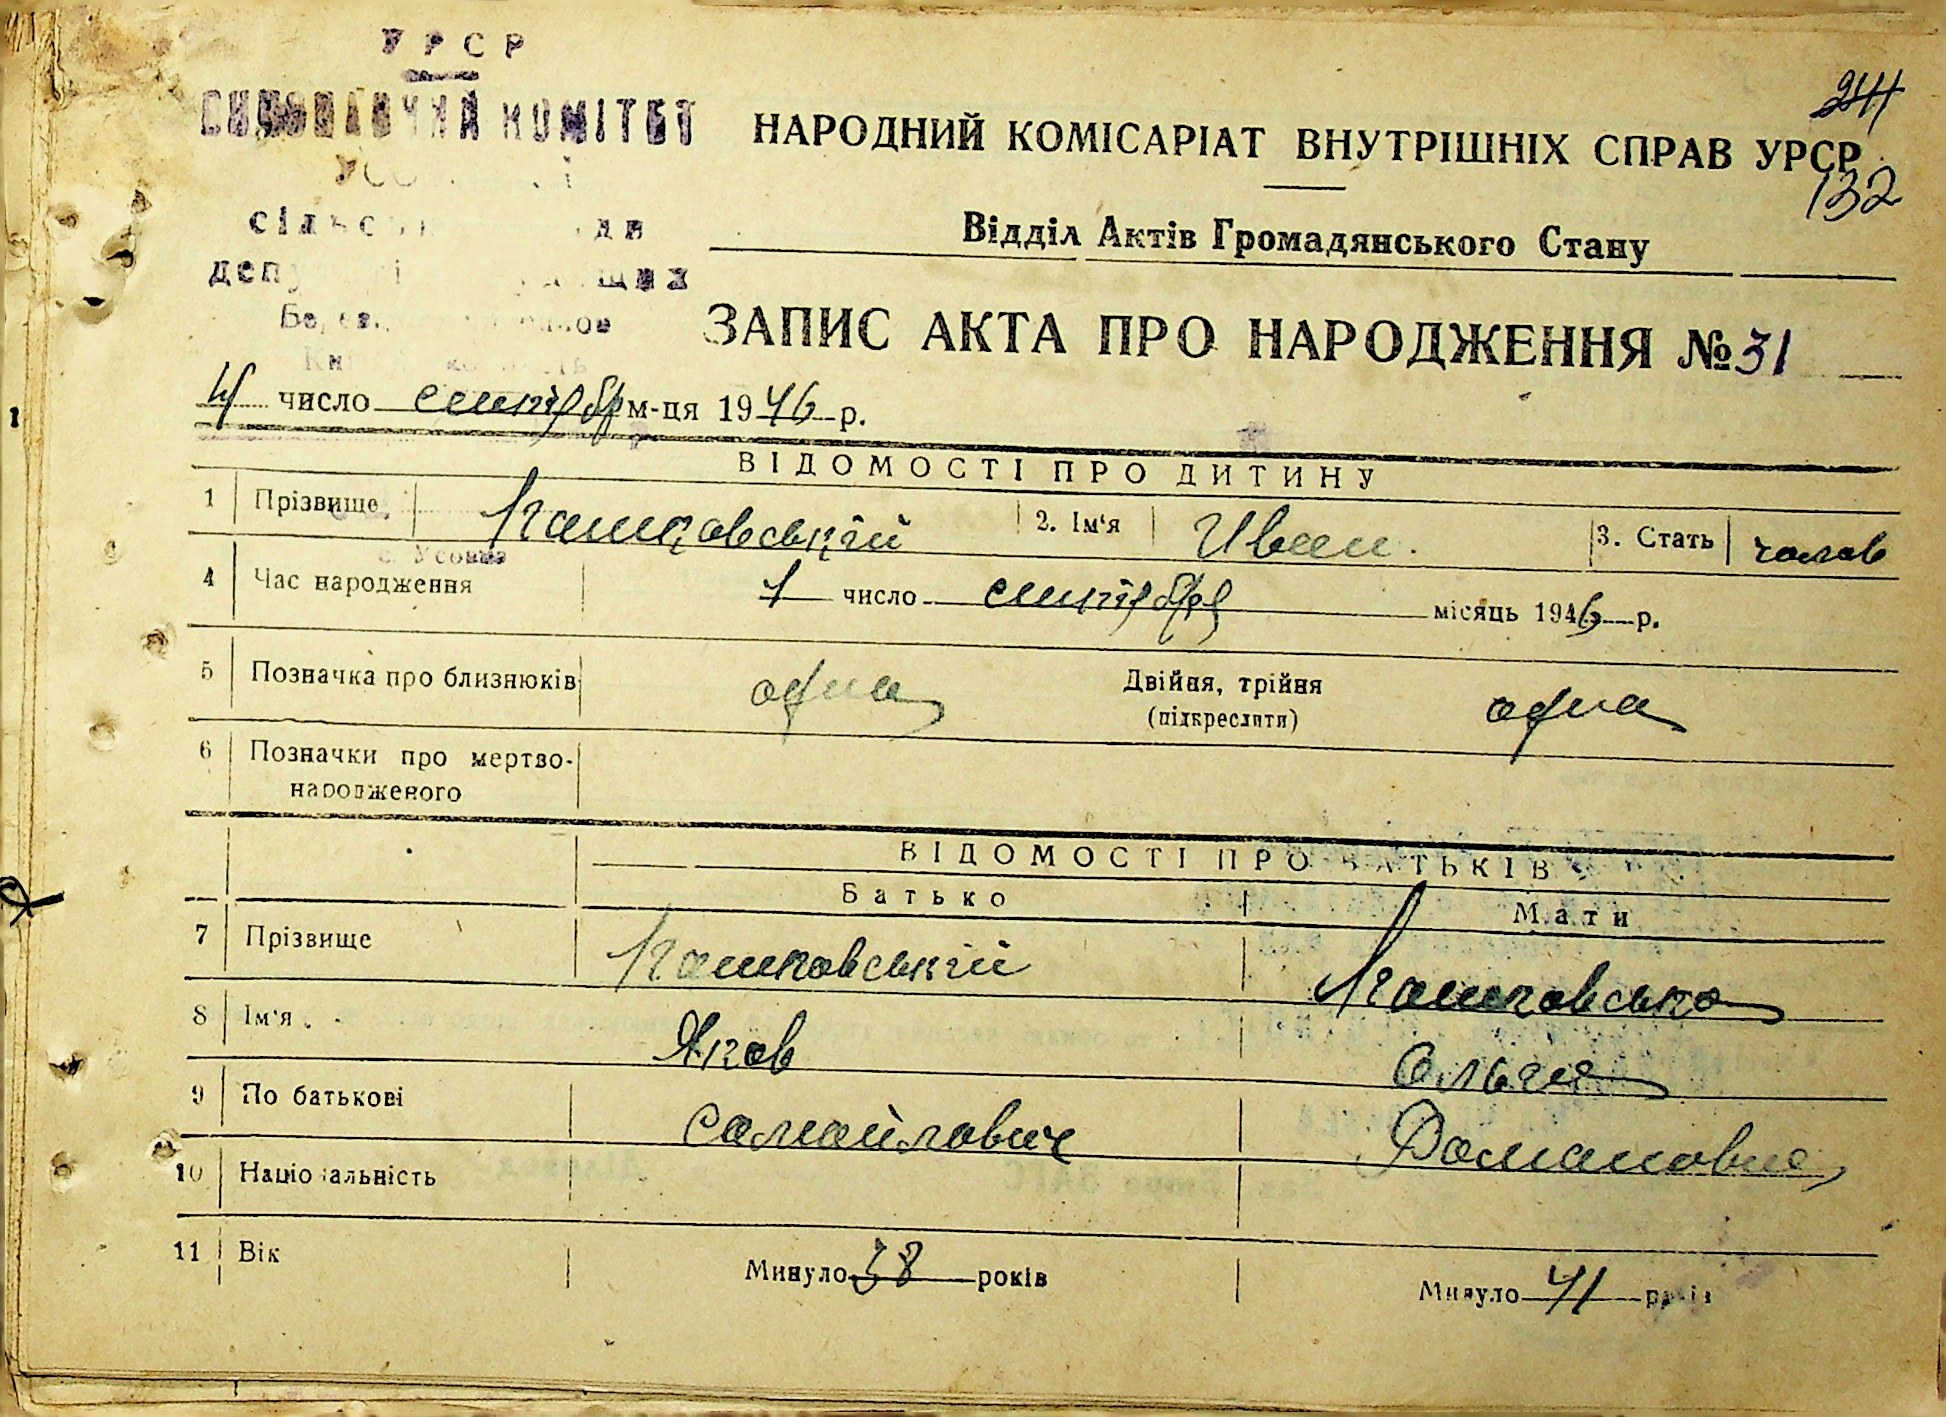 УРСР
КОМІТЕТ
244
НАРОДНИЙ КОМІСАРІАТ ВНУТРІШНІХ СПРАВ УРСР
132
Відділ Актів Громадянського Стану
ЗАПИС АКТА ПРО НАРОДЖЕННЯ № 31
4 число сентябр м-ця 1946 р.
ВІДОМОСТІ ПРО ДИТИНУ
1 Прізвище Кашковський 2. Ім'я Иван. 3. Стать чолов
с. Усовка
4 Час народження 1 число сентября місяць 1946 р.
5 Позначка про близнюків одна Двійня, трійня одна
(підкреслити)
6 Позначки про мертво-
народженого
ВІДОМОСТІ ПРО БАТЬКІВ
Батько Мати
7 Прізвище Кашковський Кашковська
8 Ім'я Яков Ольга
9 По батькові Самойлович Домановна
10 Національність
11 Вік Минуло 38 років Минуло 41 років